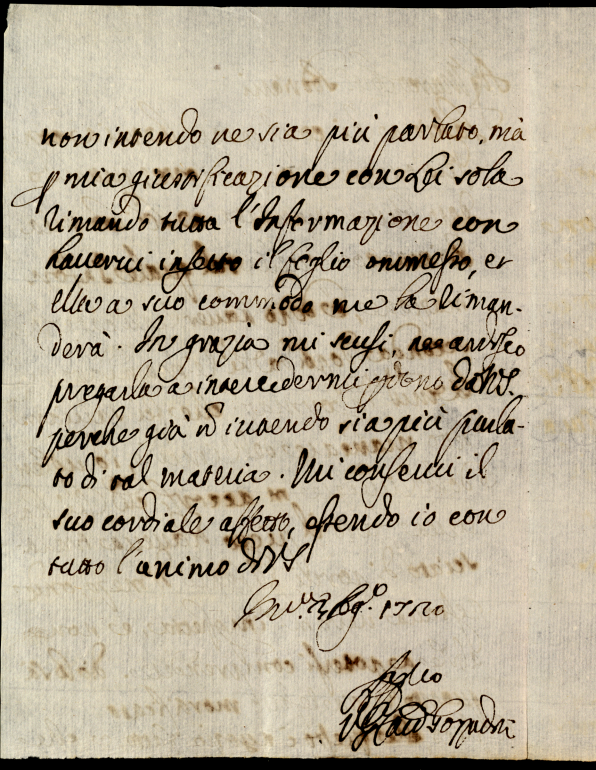 non intendo ne sia più parlato, mà
p mia giustificazione con Lei sola
rimando tutta l'Informazione con
haverci inserto il foglio ommesso, et
ella a suo commodo me la riman-
derà. In grazia mi scusi, ne ardisco
pregarla a intercedermi pdono da VS.
perche già ñ intendo sia più parla-
to di tal materia. Mi conservi il
suo cordiale affetto, essendo io con
tutto l'animo di VS
1720